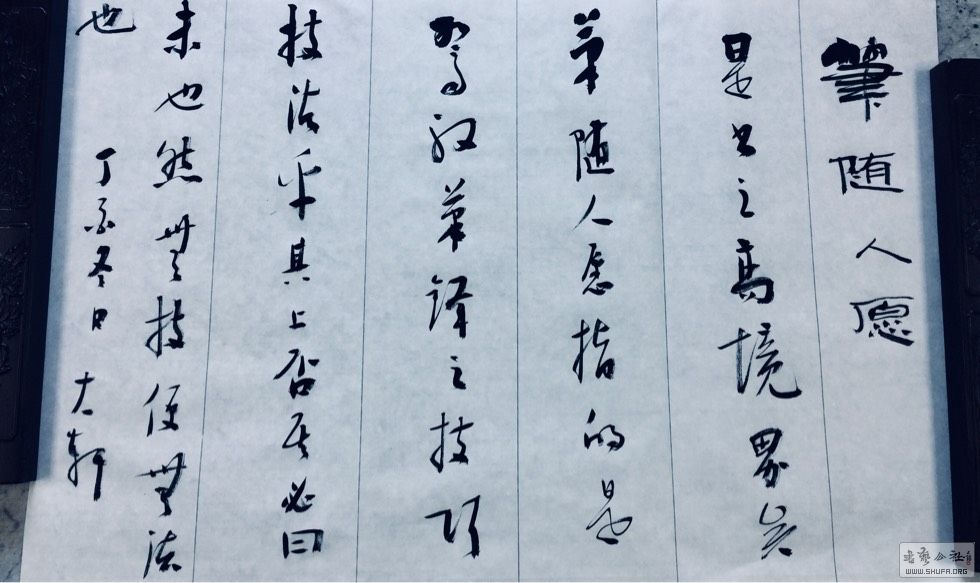 筆随人愿
是书之高境界矣
筆随人愿指的是
驾驭筆锋之技巧
技法乎其上否必曰
未也然無技便無法
也
丁亥冬日 大轩
书艺公社
WWW.SHUFA.ORG